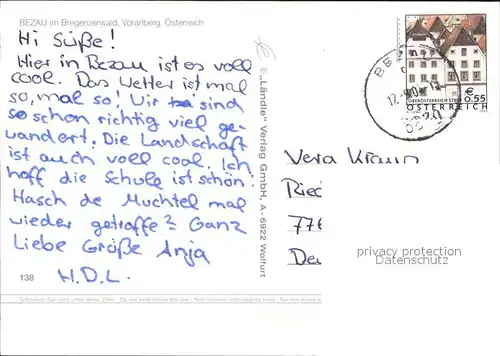 BEZAU im Bregenzerwald, Vorarlberg, Österreich
Hi Süße!
Hier in Bezau ist es voll
cool. Das Wetter ist mal
so, mal so! Wir sind
so schon richtig viel ge-
wandert. Die Landschaft
ist auch voll cool. Ich
hoff die Schule ist schön!
Hasch de Muchtel mal
wieder getroffe? Ganz
Liebe Größe Anja
H.D.L.
138
© „Ländle" Verlag GmbH, A - 6922 Wolfurt
OBERÖSTERREICH STEYR
€ 0.55
ÖSTERREICH
Vera
Ried
776
De
privacy protection
Datenschutz